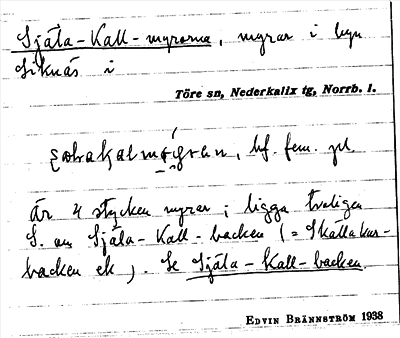 Själa-Kall-myrorna, myrar i byn
Siknäs i
Töre sn, Nederkalix tg, Norrb. l.
bf. fem. pl.
är 4 stycken myrar; ligga troligen
S. om Själa-Kall-backen (= Skallakus-
backen ek). Se Själa-Kall-backen.
EDVIN BRÄNNSTRÖM 1938